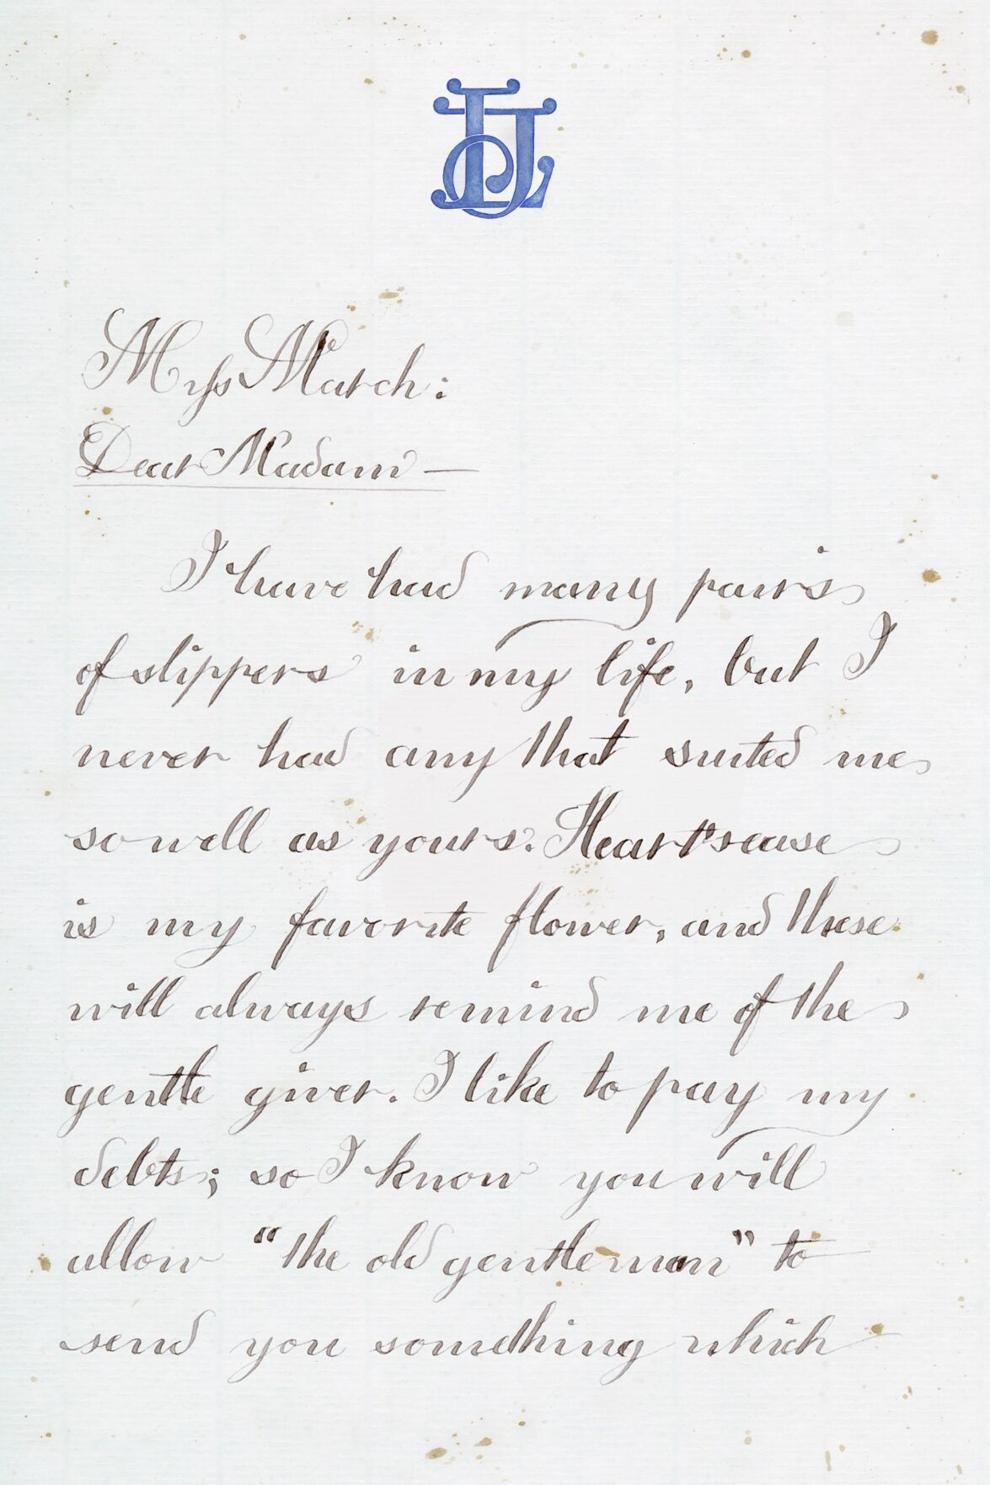 JL
Miss March:
Dear Madam—
I have had many pairs
of slippers in my life, but I
never had any that suited me
so well as yours. Heart's-ease
is my favorite flower, and these
will always remind me of the
gentle giver. I like to pay my
debts; so I know you will
allow "the old gentleman" to
send you something which